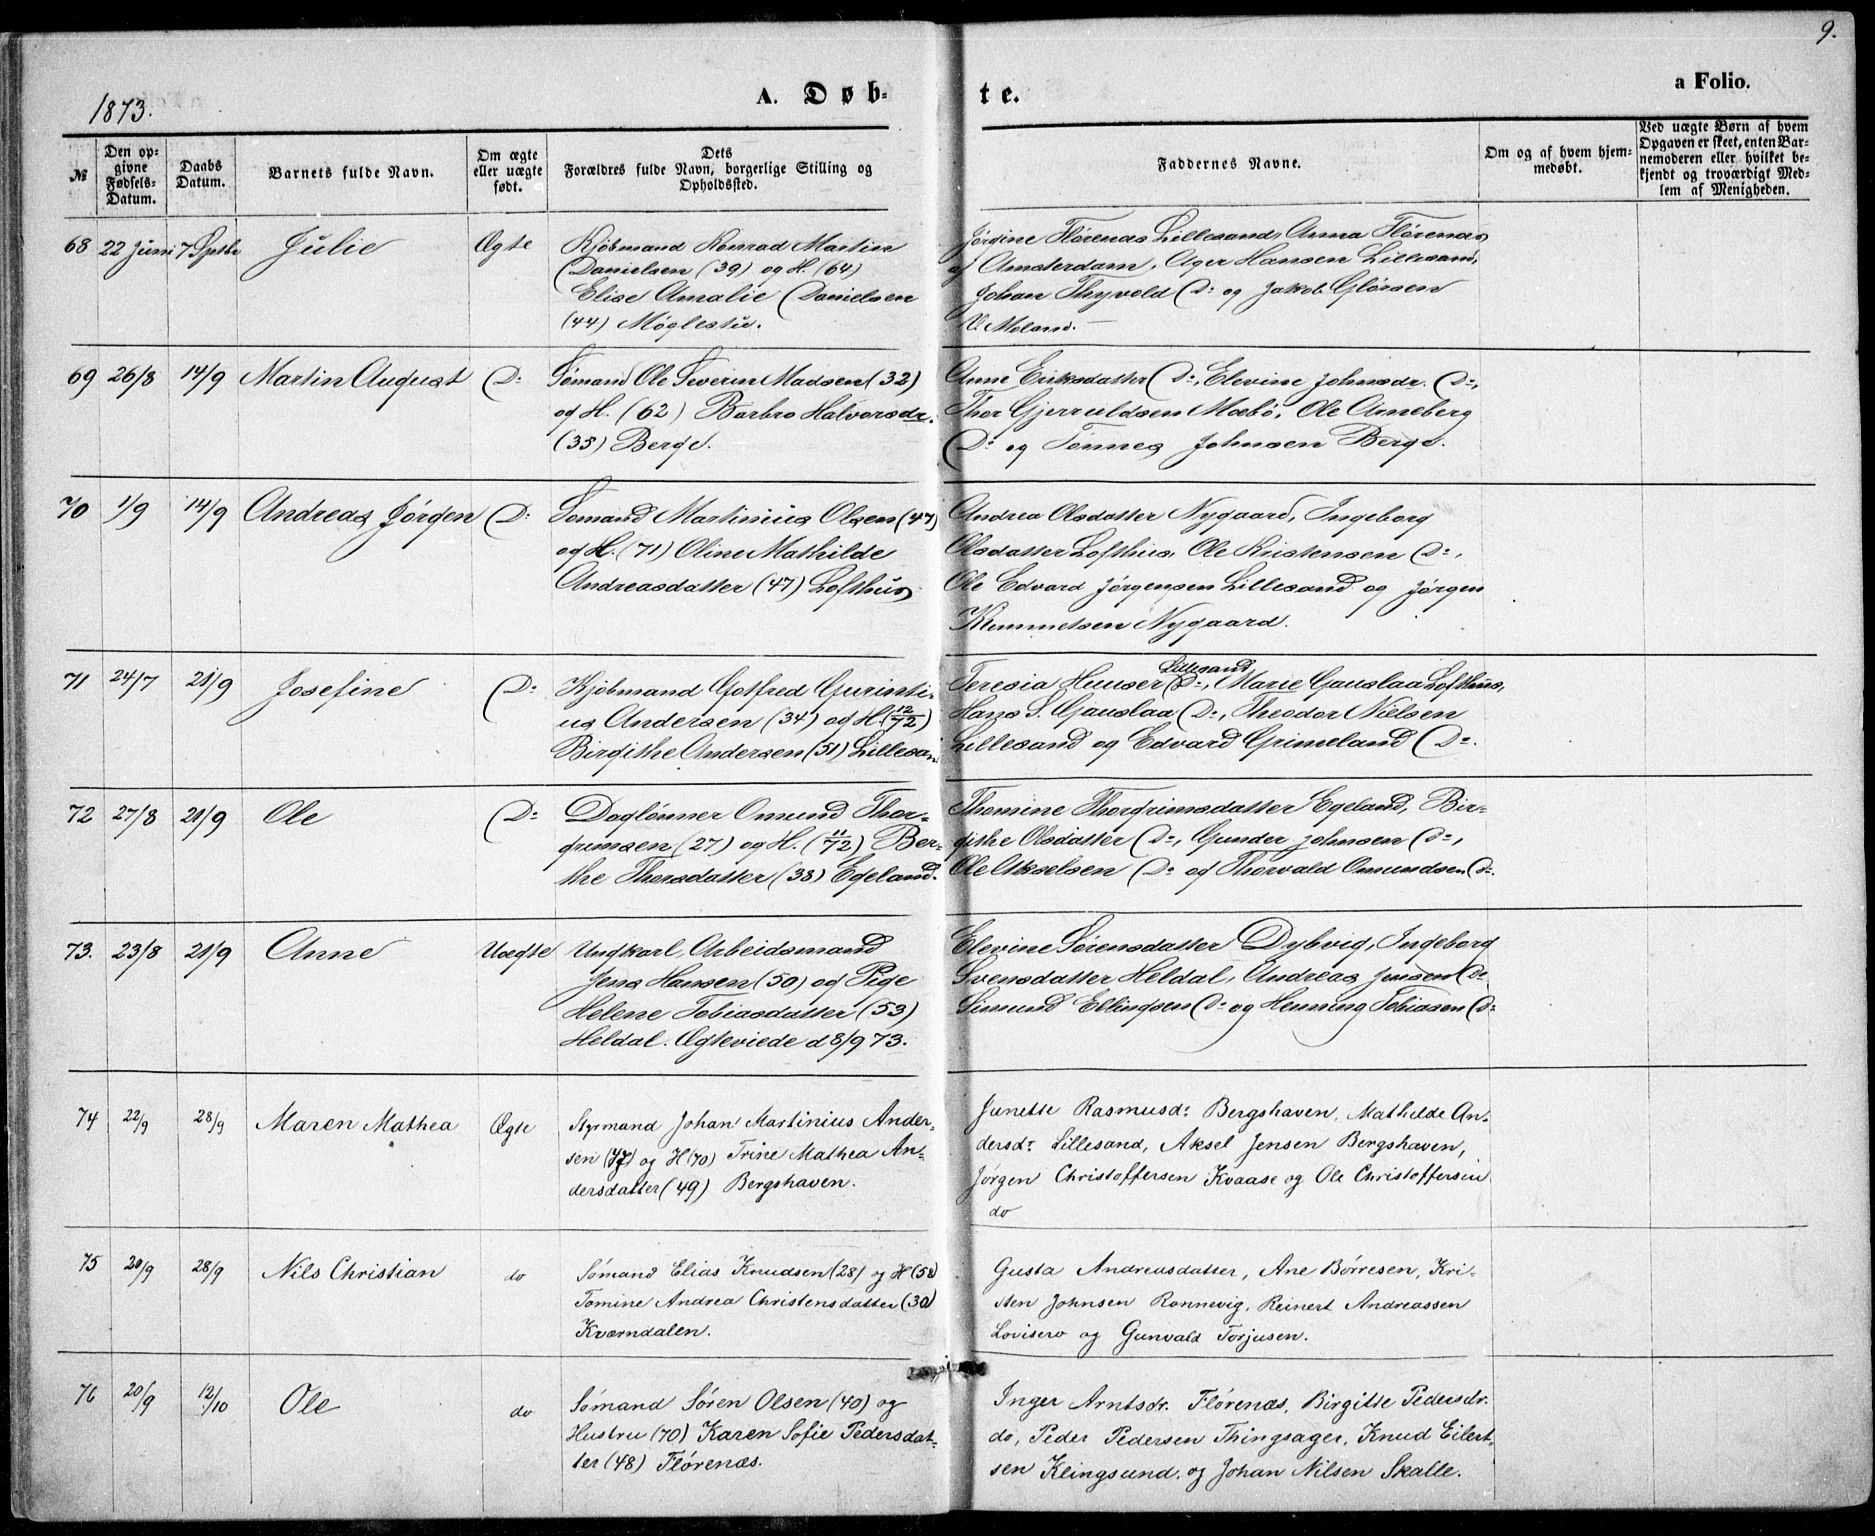 9.
1873.
A. Døb-
te.
a Folio.
№
Den op-
givne
Fødsels-
Datum.
Daabs
Datum.
Barnets fulde Navn.
Om ægte
eller uægte
født.
Dets
Forældres fulde Navn, borgerlige Stilling og
Opholdssted.
Faddernes Navne.
Om og af hvem hjem-
medøbt.
Ved uægte Børn af hvem
Opgaven er skeet, enten Bar-
nemoderen eller hvilket be-
kjendt og troværdigt Med-
lem af Menigheden.
68 22 Juni 7 Sptbr Julie Ægte
Kjøbmand Konrad Martin
Danielsen (39) og H. (64)
Elise Amalie Danielsen
(44) Møglestu.
Jørgine Flørenæs Lillesand, Anna Flørenæs
af Amsterdam, Ager Hansen Lillesand,
Johan Thyvold D: og Jakob Glørsen
V. Moland.
69 26/8 14/9 Martin August D:
Sømand Ole Severin Madsen (32)
og H. (62) Barbro Halvorsdr.
(35) Berge.
Anne Eriksdatter D:, Elevine Johnsdr. D:,
Thor Gjerruldsen Mæbö, Ole Arneberg
D: og Tønnes Johnsen Berge.
70 1/9 14/9 Andreas Jørgen D:
Sømand Martinius Olsen (47)
og H. (71) Oline Mathilde
Andreasdatter (47) Lofthus
Andrea Olsdatter Nygaard, Ingeborg
Olsdatter Lofthus, Ole Kristensen D:,
Ole Edvard Jørgensen Lillesand og Jørgen
Klemmetsen Nygaard.
71 24/7 21/9 Josefine D:
Kjøbmand Gotfred Gurinti-
us Andersen (34) og H. (12/72)
Birgithe Andersen (51) Lillesan
Lillesand
Teresia Heuser D:, Marie Gauslaa Lofthus,
Hans S. Gauslaa D:, Theodor Nielsen
Lillesand og Edvard Grimeland D:.
72 27/8 21/9 Ole D:
Daglønner Omund Thor-
grimsen (27) og H. (11/72) Ber-
the Thorsdatter (38) Egeland.
Thomine Thorgrimsdatter Egeland, Bir-
githe Olsdatter D:, Gunder Johnsen D:,
Ole Akselsen D: og Thorvald Omundsen D:.
73. 23/8 21/9 Anne Uægte
Ungkarl, Arbeidsmand
Jens Hansen (50) og Pige
Helene Tobiasdatter (53)
Heldal. Ægteviede d 8/9 73.
Elevine Sørensdatter Dybvig, Ingeborg
Svensdatter Heldal, Andreas Jensen D:
Simund Ellingsen D: og Henning Tobiasen D:
74 22/9 28/9 Maren Mathea Ægte
Styrmand Johan Martinius Ander-
sen (47) og H (70) Trine Mathea An-
dersdatter (49) Bergshaven.
Janette Rasmusd: Bergshaven, Mathilde An-
dersdr Lillesand, Aksel Jensen Bergshaven,
Jørgen Christoffersen Kvaase og Ole Christoffersen
do
75 20/9 28/9 Nils Christian do
Sømand Elias Knudsen (28) og H (58)
Tomine Andrea Christensdatter (30)
Kværndalen.
Gusta Andreasdatter, Ane Børresen, Kri-
sten Johnsen Rønnevig, Reinert Andreassen
Lovisero og Gunvald Torjusen.
76 20/9 12/10 Ole do
Sømand Søren Olsen (40) og
Hustru (70) Karen Sofie Pedersdat-
ter (48) Flørenæs.
Inger Arntsdr. Flørenæs, Birgitte Pedersdr.
do, Peder Pedersen Thingsager, Knud Eilert-
sen Klingsund, og Johan Nilsen Skalle.